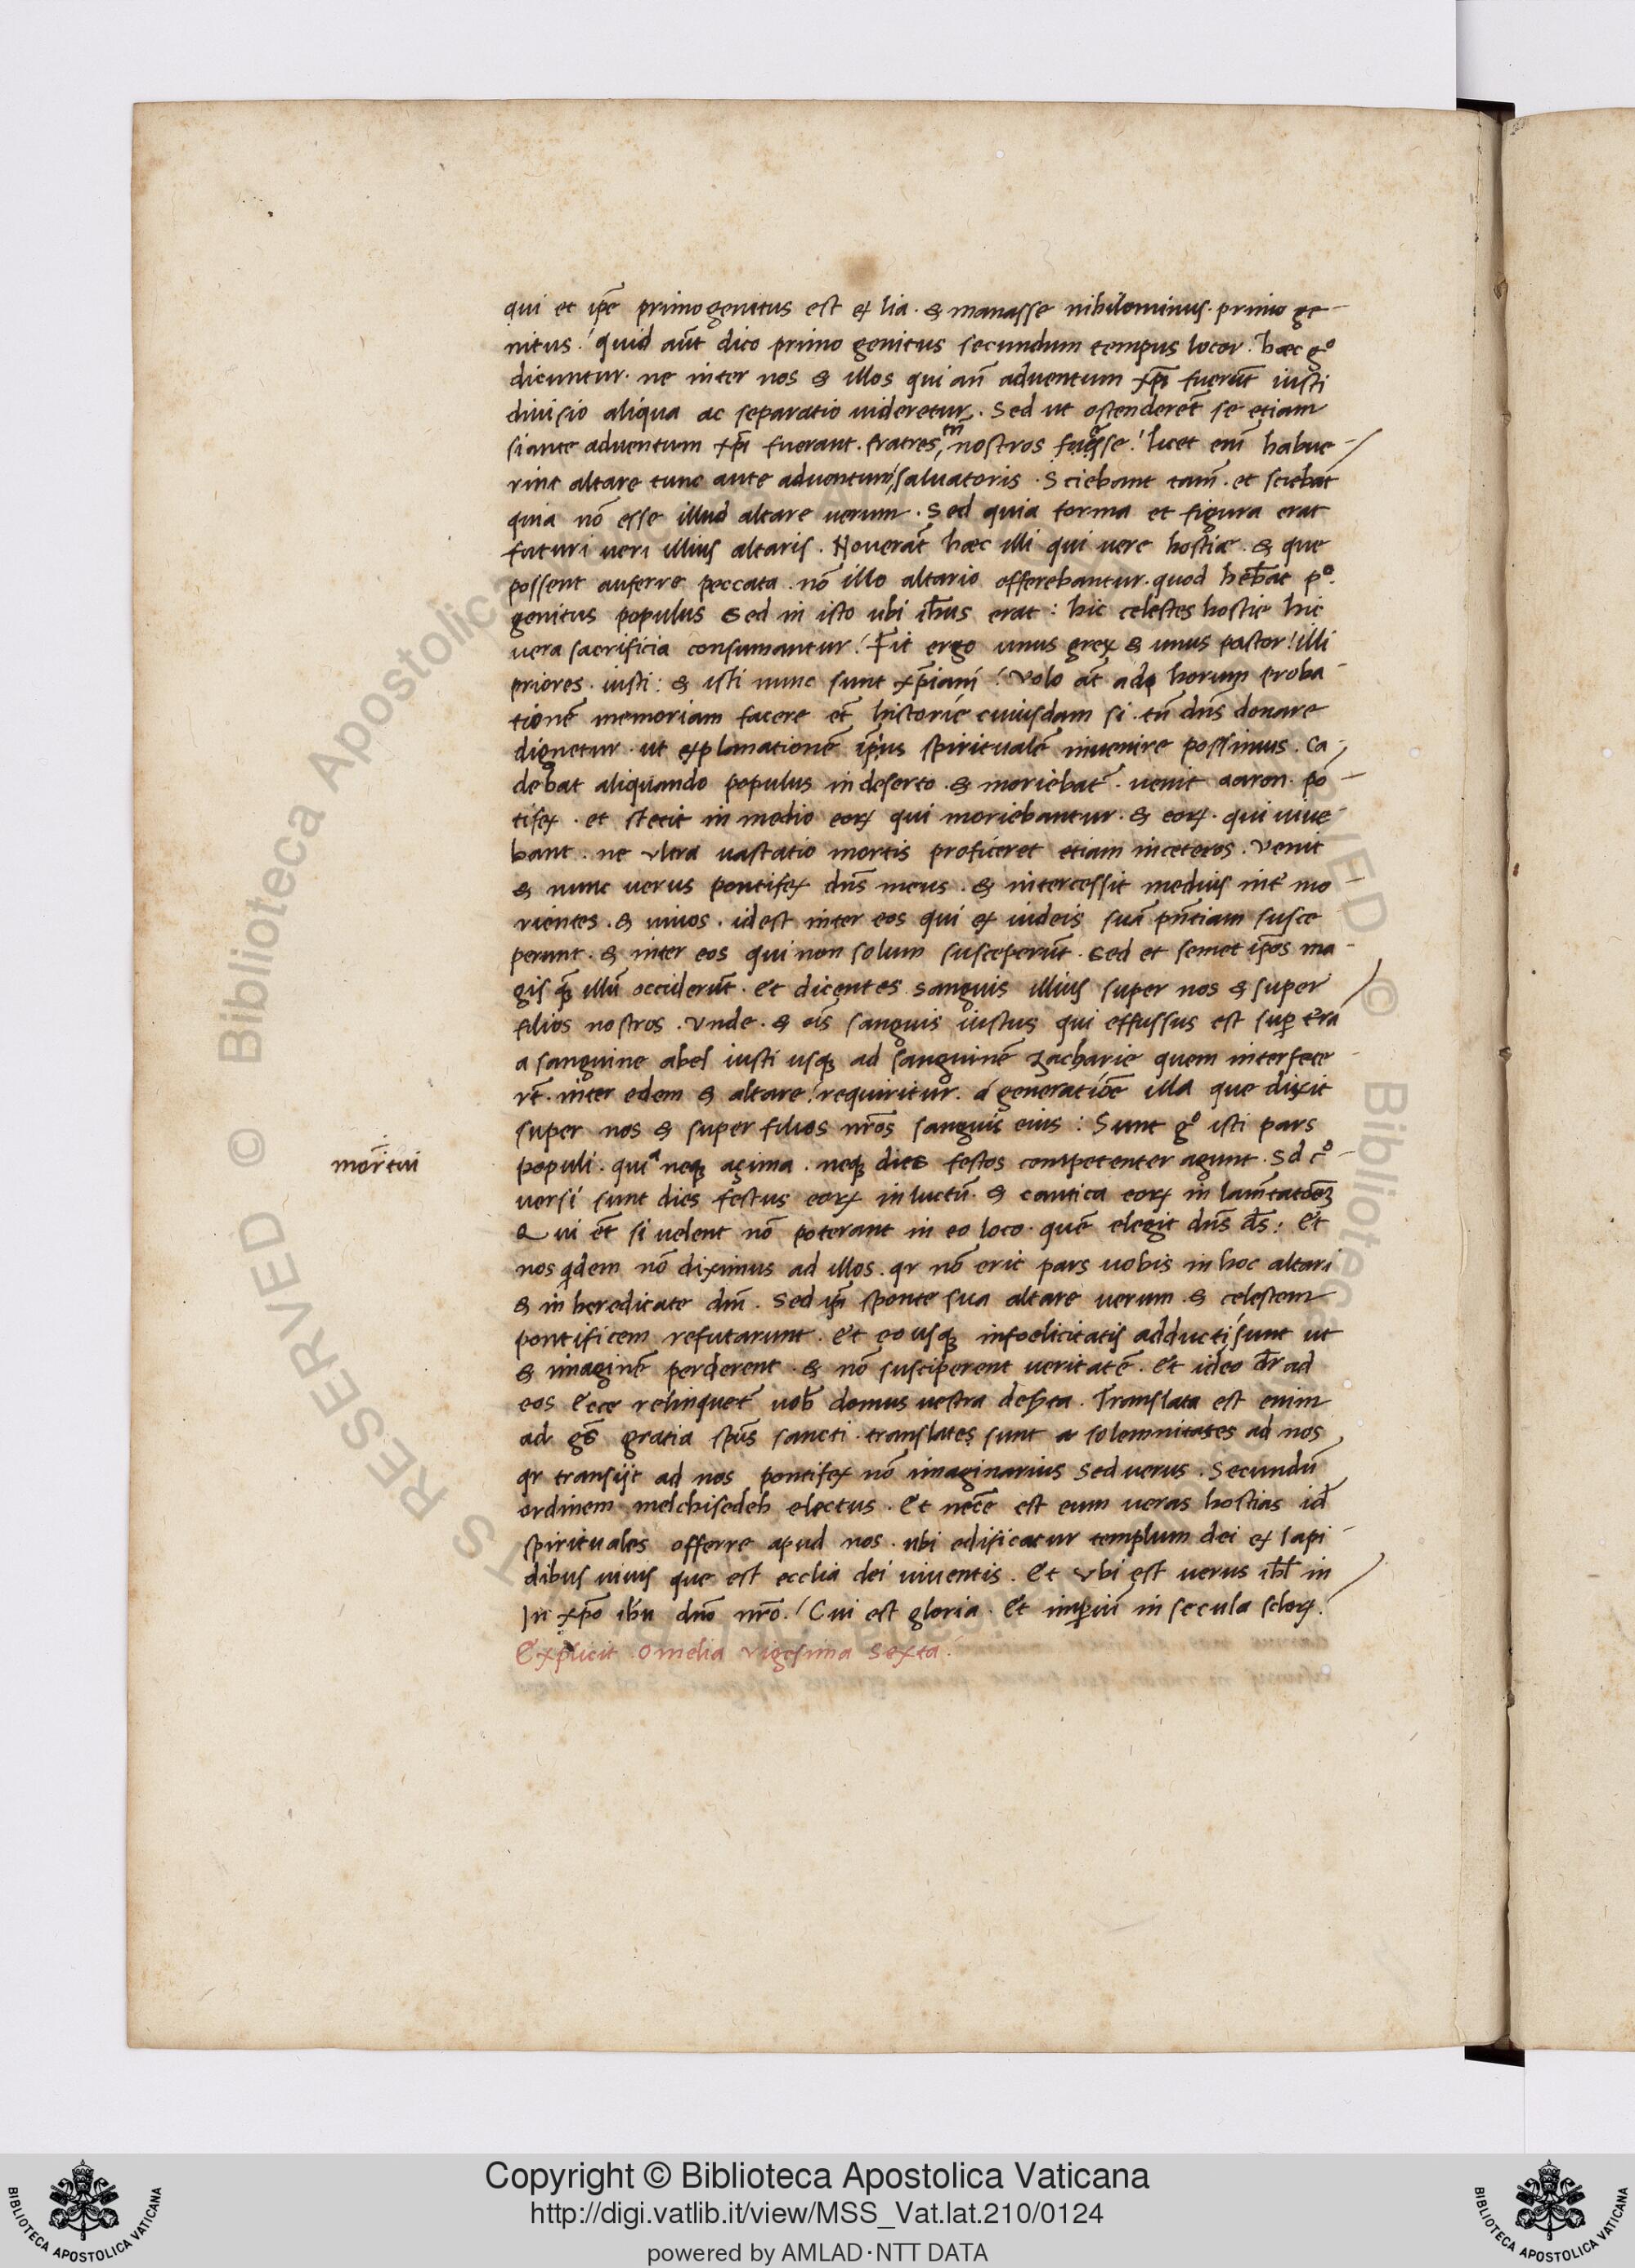 qui et ip̄e primogenitus est ex lia · & manasse nihilominus · primo ge-
nitus · quid aūt dico primo genitus secundum tempus locor · hæc gº
dicuntur · ne inter nos & illos qui añ aduentum xp̄i fuerūt iusti
diuisio aliqua ac separatio uideretur · Sed ut ostenderēt se etiam
siante aduentum xp̄i fuerant · fratres tn̄ nostros fuisse · licet eni᷑ habue-
rint altare tunc ante aduentum saluatoris · Sciebant tam̄ · et sciebāt
quia nō esse illud altare uerum · Sed quia forma et figura erat
futuri ueri illius altaris · Nouerāt hæc illi qui uere hostiæ · & que
possent auferre peccata · nō illo altario offerebantur · quod heb̄at pº ·
genitus populus Sed in isto ubi ih̄us erat : hic celestes hostie hic
uera sacrificia consumantur · Fit ergo unus grex & unus pastor · illi
priores · iusti : & isti nunc sunt xp̄iani · Volo āt ad horum proba-
tionē memoriam facere et̄ historie cuiusdam si · tn̄ dn̄s donare
dignetur · ut explanationē ip̄ius spiritualē inuenire possimus · Ca-
debat aliquando populus in deserto · & moriebat᷑ · uenit aaron · pō-
tifex · et stetit in medio eoꝝ qui moriebantur · & eoꝝ · qui uiue-
bant · ne ultra uastatio mortis proficeret etiam inceteros · Venit
& nunc uerus pontifex dn̄s meus · & intercessit medius int᷑ mo-
rientes · & uiuos · idest inter eos qui ex iudeis suā pn̄tiam susce
perunt · & inter eos qui non solum susceperūt · Sed et semet ip̄os ma-
gis ꝙ illū occiderūt · et dicentes sanguis illius super nos & super
filios nostros · Vnde · & eis sanguis iustus qui effussus est suꝑ t᷑rā
a sanguine abel iusti usqꝫ ad sanguinē zacharie quem interfece-
rt̄ · inter edem & altare · requiritur · a generatiōe illa que dixit
super nos & super filios nr̄os sanguis eius : Sunt gº isti pars
mor᷑tui
populi · quia neqꝫ açima · neqꝫ dies festos competenter agunt · Sd cº-
uersi sunt dies festus eoꝝ in luctū · & cantica eoꝝ in lam̄tatōeꝫ
Qui et̄ si uelent nō poterant in eo loco · quē elegit dn̄s ds̄ : Et
nos qdem nō diximus ad illos · qr nō erit pars uobis in hoc altari
& in hereditate dn̄i · Sed ip̄i sponte sua altare uerum · & celestem
pontificem refutarunt · et eo usqꝫ infoelicitatis adducti sunt ut
& imaginē perderent · & nō susciperent ueritatē · Et ideo dr̄ ad
eos Ecce relinquet᷑ uob̄ domus uestra desˀta · Translata est enim
ad gēs gratia spūs sancti · translates sunt a solemnitates ad nos
qr transijt ad nos pontifex nō imaginarius Sed uerus · Secundū
ordinem melchisedeh electus · Et necē est eum ueras hostias id᷑
spirituales offerre apud nos · ubi edificatur templum dei ex lapi-
dibus uiuis que est ecclia dei uiuentis · Et Vbi est uerus ih̄l in
In xp̄o ih̄u dn̄o nr̄o · Cui est gloria · Et imꝑiū in secula scl̄oꝝ ·
Explicit Omelia Vigesima Sexta ·
Copyright © Biblioteca Apostolica Vaticana
http://digi.vatlib.it/view/MSS_Vat.lat.210/0124
powered by AMLAD·NTT DATA
BIBLIOTECA APOSTOLICA VATICANA
BIBLIOTECA APOSTOLICA VATICANA